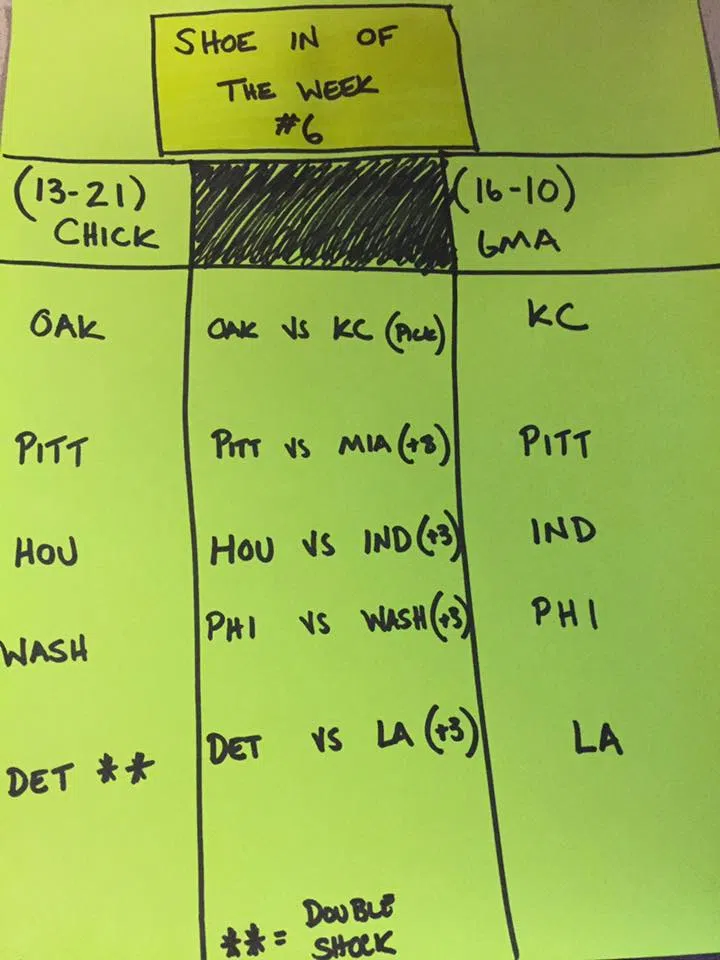 SHOE IN OF
THE WEEK
#6
(13-21)
CHICK
(16-10)
GMA
OAK
OAK VS KC (PICK)
KC
PITT
PITT VS MIA (+8)
PITT
HOU
HOU VS IND (+3)
IND
WASH
PHI VS WASH (+3)
PHI
DET **
DET VS LA (+3)
LA
** = DOUBLE
SHOCK